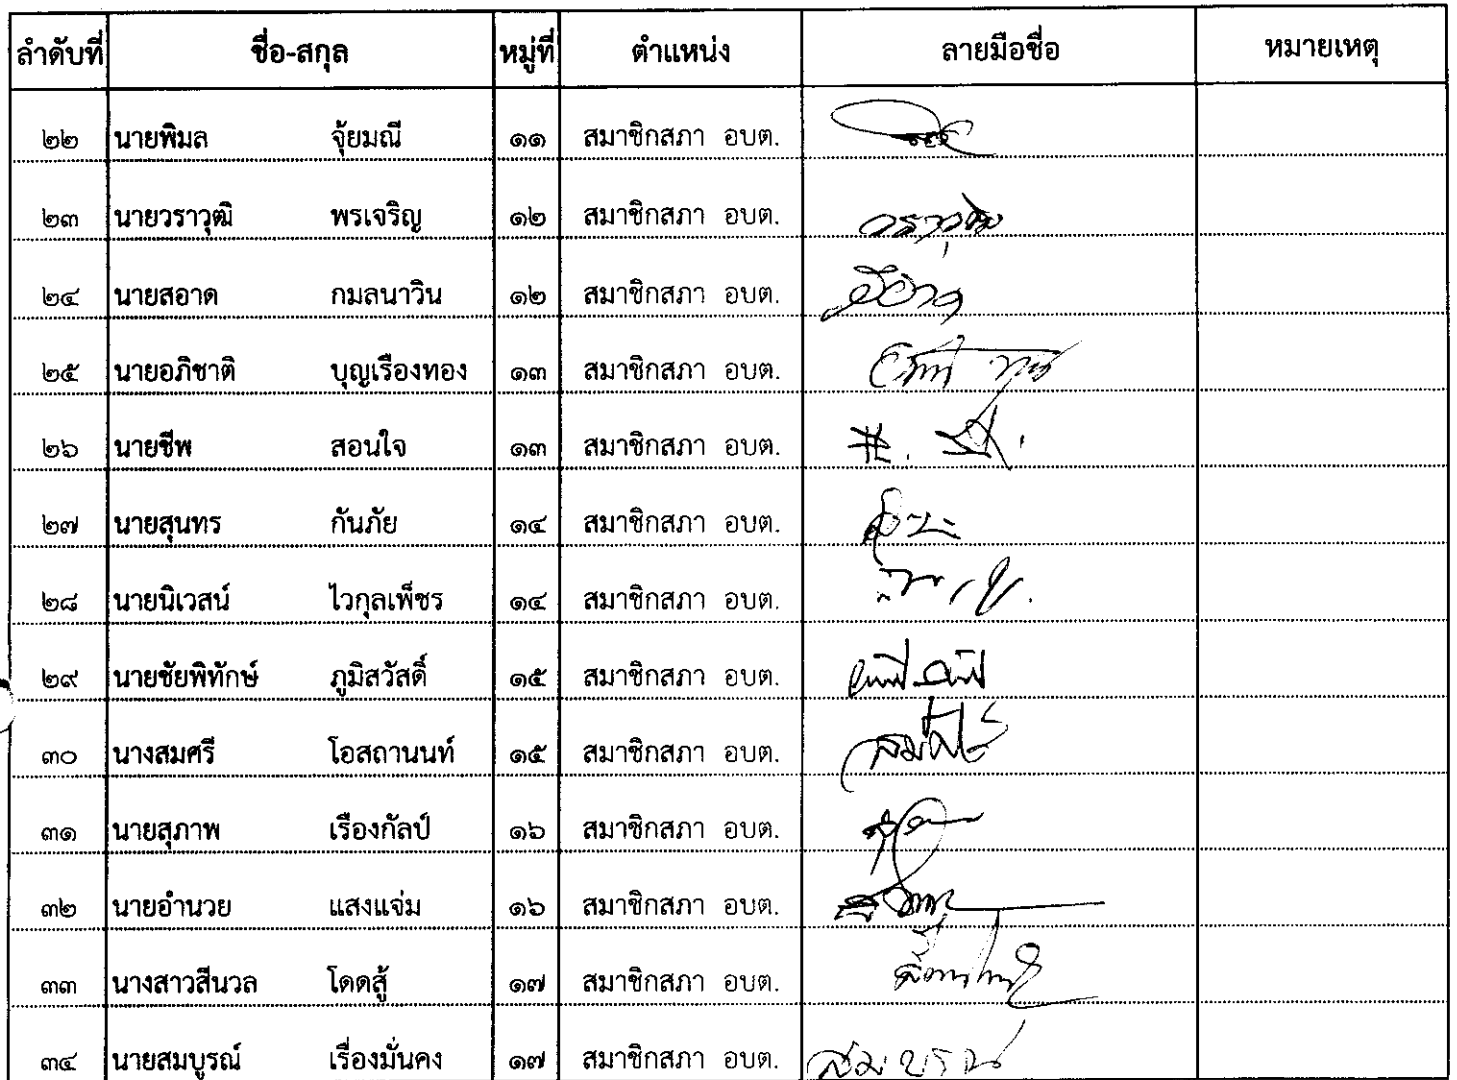 ลำดับที่ ชื่อ-สกุล หมู่ที่ ตำแหน่ง ลายมือชื่อ หมายเหตุ
๒๒ นายพิมล จุ้ยมณี ๑๑ สมาชิกสภา อบต.
๒๓ นายวราวุฒิ พรเจริญ ๑๒ สมาชิกสภา อบต. วราวุฒิ
๒๔ นายสอาด กมลนาวิน ๑๒ สมาชิกสภา อบต. สอาด
๒๕ นายอภิชาติ บุญเรืองทอง ๑๓ สมาชิกสภา อบต.
๒๖ นายชีพ สอนใจ ๑๓ สมาชิกสภา อบต.
๒๗ นายสุนทร กันภัย ๑๔ สมาชิกสภา อบต.
๒๘ นายนิเวสน์ ไวกุลเพ็ชร ๑๔ สมาชิกสภา อบต.
๒๙ นายชัยพิทักษ์ ภูมิสวัสดิ์ ๑๕ สมาชิกสภา อบต.
๓๐ นางสมศรี โอสถานนท์ ๑๕ สมาชิกสภา อบต. สมศรี
๓๑ นายสุภาพ เรืองกัลป์ ๑๖ สมาชิกสภา อบต.
๓๒ นายอำนวย แสงแจ่ม ๑๖ สมาชิกสภา อบต.
๓๓ นางสาวสีนวล โดดสู้ ๑๗ สมาชิกสภา อบต.
๓๔ นายสมบูรณ์ เรื่องมั่นคง ๑๗ สมาชิกสภา อบต. สมบูรณ์